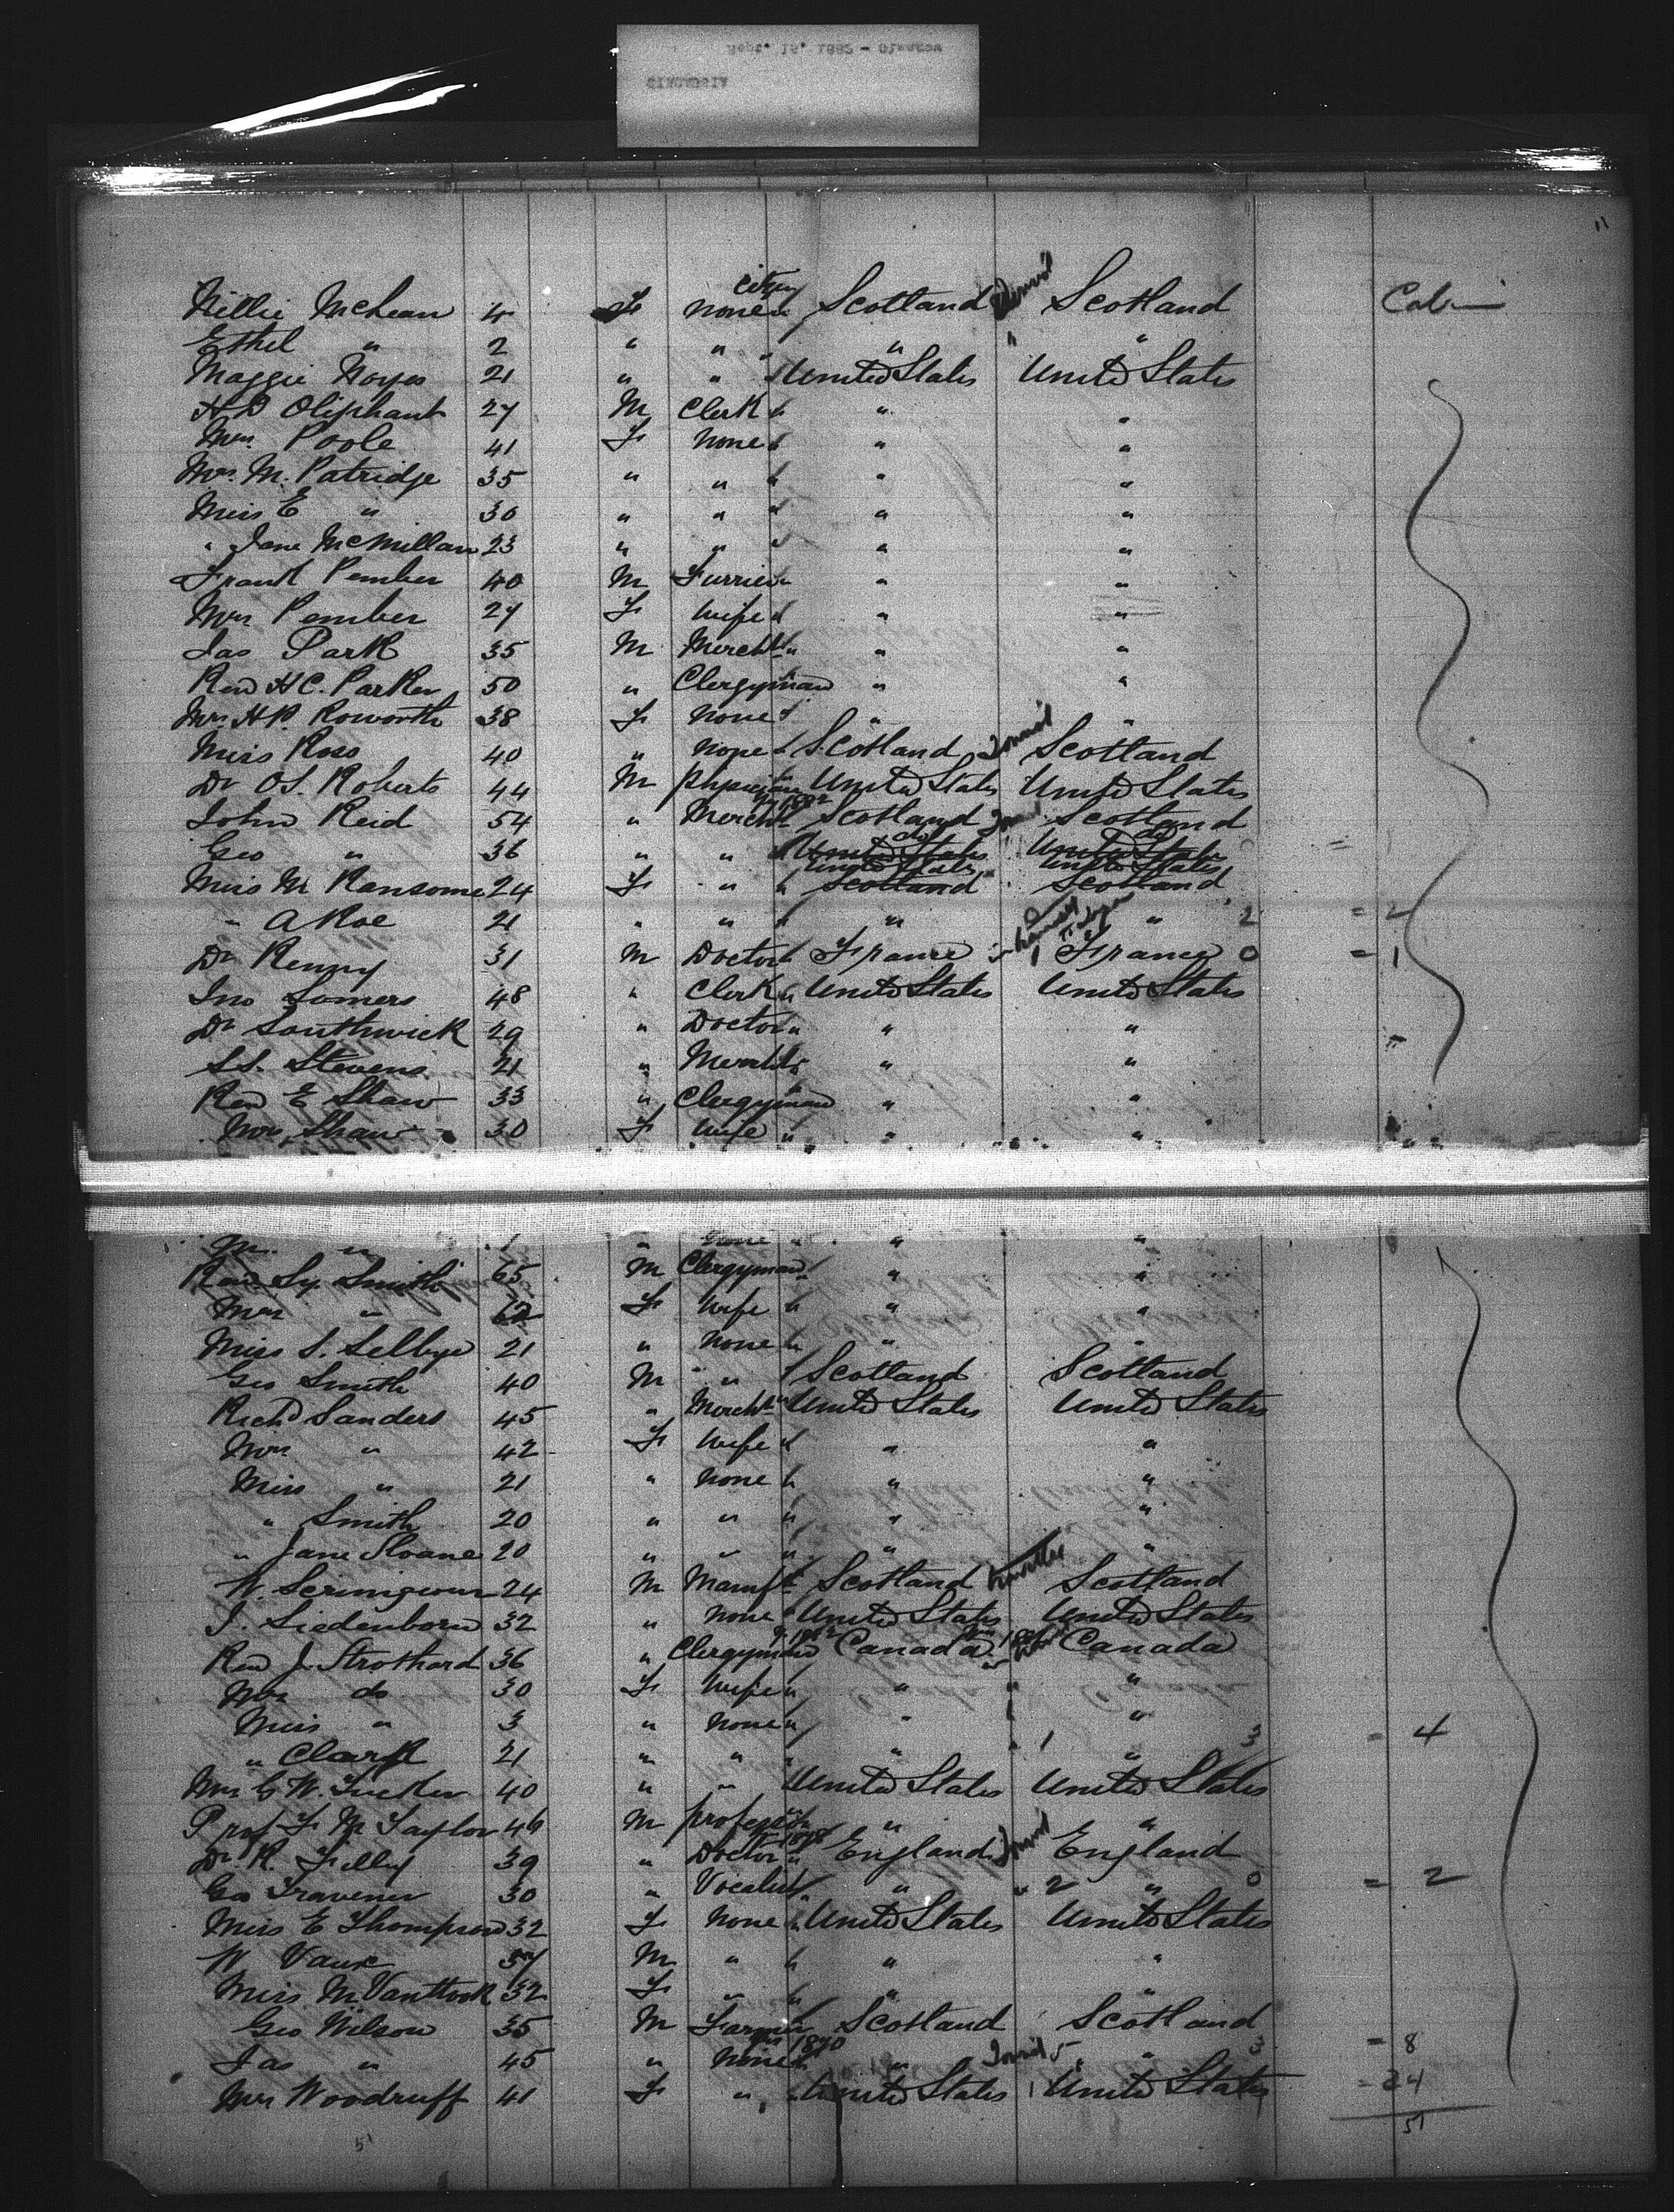 Sept. 16. 1892 - Glasgow
11
citizen
Nellie McLean 4 F none Scotland Scotland Cabin
Ethel " 2 " " " "
Maggie Noyes 21 " " United States United States
H B Oliphant 27 M Clerk " "
Mrs. Poole 41 F none " "
Mrs. M. Patridge 35 " " " "
Miss E " 30 " " " "
" Jane McMillan 23 " " " "
Frank Pember 40 M Furrier " "
Mrs Pember 27 F Wife " "
Jas Park 35 M Mercht " "
Revd H C. Parker 50 " Clergyman " "
Mrs H.P. Roworth 38 F none " "
Miss Ross 40 " none Scotland Tourist Scotland
Dr O.S. Roberts 44 M physician United States United States
John Reid 54 " Mercht Scotland Scotland
do do
Geo " 36 " " United States United States =
United States United States
Miss M Ransome 24 F " " Scotland Scotland
" A Roe 21 " " " " 2 = 2
Dr Renny 31 M Doctor France 1 France 0 = 1
Jno Somers 48 " Clerk United States United States
Dr Southwick 29 " Doctor " "
S.S. Stevens 21 " Mercht " "
Revd E Shaw 33 " Clergyman " "
Mrs Shaw 30 F Wife " "
M. " 1 " none " "
Revd Sy. Smith 65 M Clergyman " "
Mrs " 62 F Wife " "
Miss S. Selbye 21 " none " "
Geo Smith 40 M " Scotland Scotland
Richd Sanders 45 " Mercht United States United States
Mrs " 42 F Wife " "
Miss " 21 " none " "
" Smith 20 " " " "
" Jane Sloane 20 " " " "
W. Scrimgeour 24 M Manuft Scotland Scotland
J. Siedenborn 32 " none United States United States
Revd J. Strothard 36 " Clergyman Canada Canada
Mrs do 30 F Wife " "
Miss " 3 " none " "
" Clark 21 " " " 1 " 3 = 4
Mrs G W. Tucker 40 " " United States United States
Prof F M Taylor 46 M professor " "
1878
Dr. R. Tilley 39 " Doctor England Tourist England
Geo Travener 30 " Vocalist " " 2 " 0 = 2
Miss E Thompson 32 F none United States United States
W Vaux 57 M " " "
Miss M Vanttook 32 F " " "
Geo Wilson 35 M Farmer Scotland Scotland
1870
Jas " 45 " none " Tourist 5 " 3 = 8
Mrs Woodruff 41 F " United States United States = 24
51
51